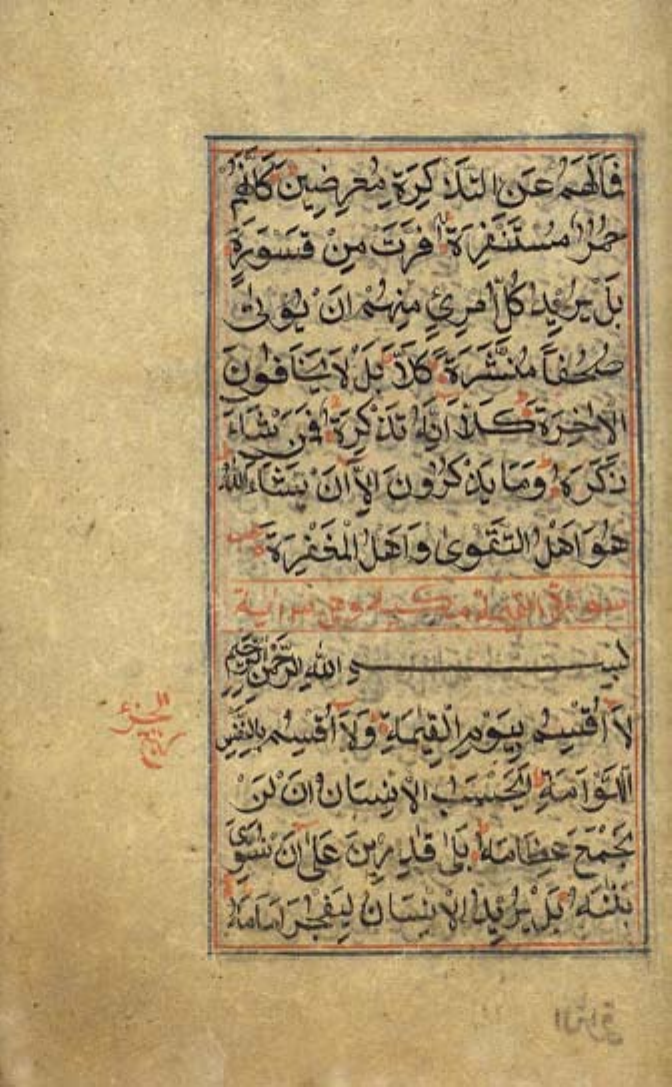 فَمَا لَهُمْ عَنِ التَّذْكِرَةِ مُعْرِضِينَ كَاَنَّهُمْ
حُمُرٌ مُسْتَنْفِرَةٌ فَرَّتْ مِنْ قَسْوَرَةٍ
بَلْ يُرِيدُ كُلُّ امْرِئٍ مِنْهُمْ اَنْ يُؤْتٰى
صُحُفًا مُنَشَّرَةً كَلَّا بَلْ لَا يَخَافُونَ
الْاٰخِرَةَ كَلَّا اِنَّهُ تَذْكِرَةٌ فَمَنْ شَاءَ
ذَكَرَهُ وَمَا يَذْكُرُونَ اِلَّا اَنْ يَشَاءَ اللّٰهُ
هُوَ اَهْلُ التَّقْوٰى وَاَهْلُ الْمَغْفِرَةِ
سورة القيمة مكية وهى اية
بِسْمِ اللّٰهِ الرَّحْمٰنِ الرَّحِيمِ
لَا اُقْسِمُ بِيَوْمِ الْقِيٰمَةِ وَلَا اُقْسِمُ بِالنَّفْسِ
اللَّوَّامَةِ اَيَحْسَبُ الْاِنْسَانُ اَنْ لَنْ
نَجْمَعَ عِظَامَهُ بَلٰى قَادِرِينَ عَلٰى اَنْ نُسَوِّىَ
بَنَانَهُ بَلْ يُرِيدُ الْاِنْسَانُ لِيَفْجُرَ اَمَامَهُ
الجزء